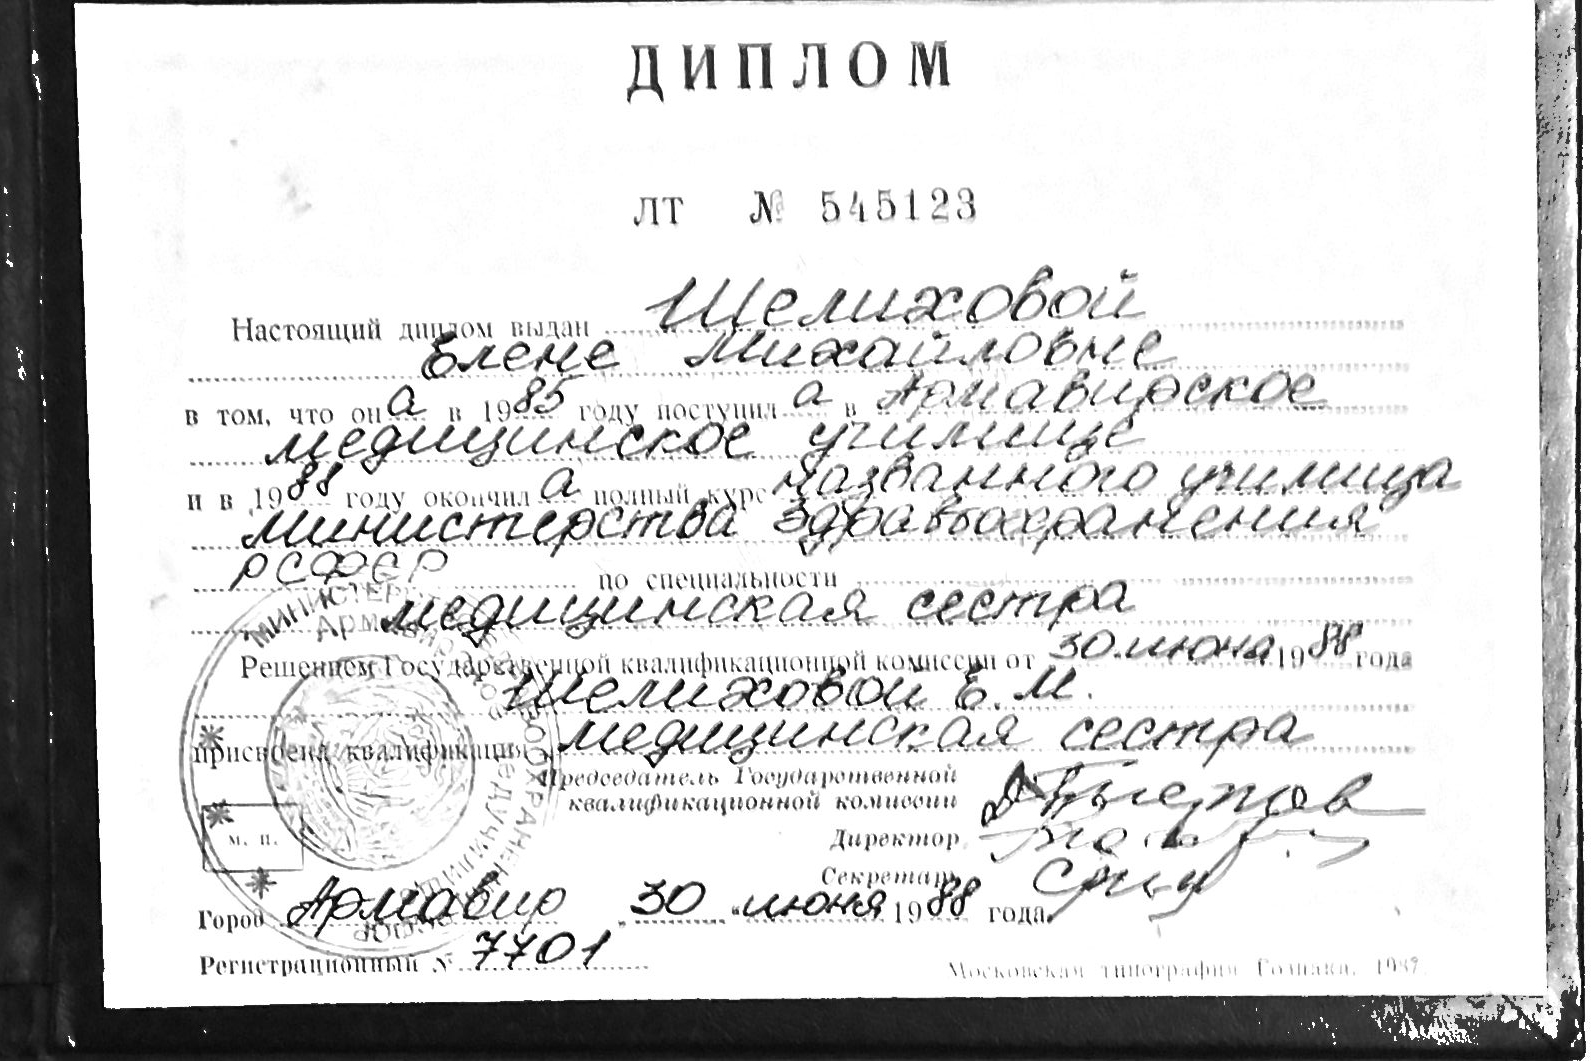 ДИПЛОМ
ЛТ № 545123
Настоящий диплом выдан Шелиховой
Елене Михайловне
в том, что она в 1985 году поступила в Армавирское
медицинское училище
и в 1988 году окончила полный курс названного училища
министерства здравоохранения
РСФСР по специальности
медицинская сестра
Решением Государственной квалификационной комиссии от 30 июня 1988 года
Шелиховой Е. М.
присвоена квалификация медицинская сестра
Председатель Государственной
квалификационной комиссии
Директор
Секретарь
м. п.
Город Армавир „30" июня 1988 года
Регистрационный № 7701
Московская типография Гознака. 1987.